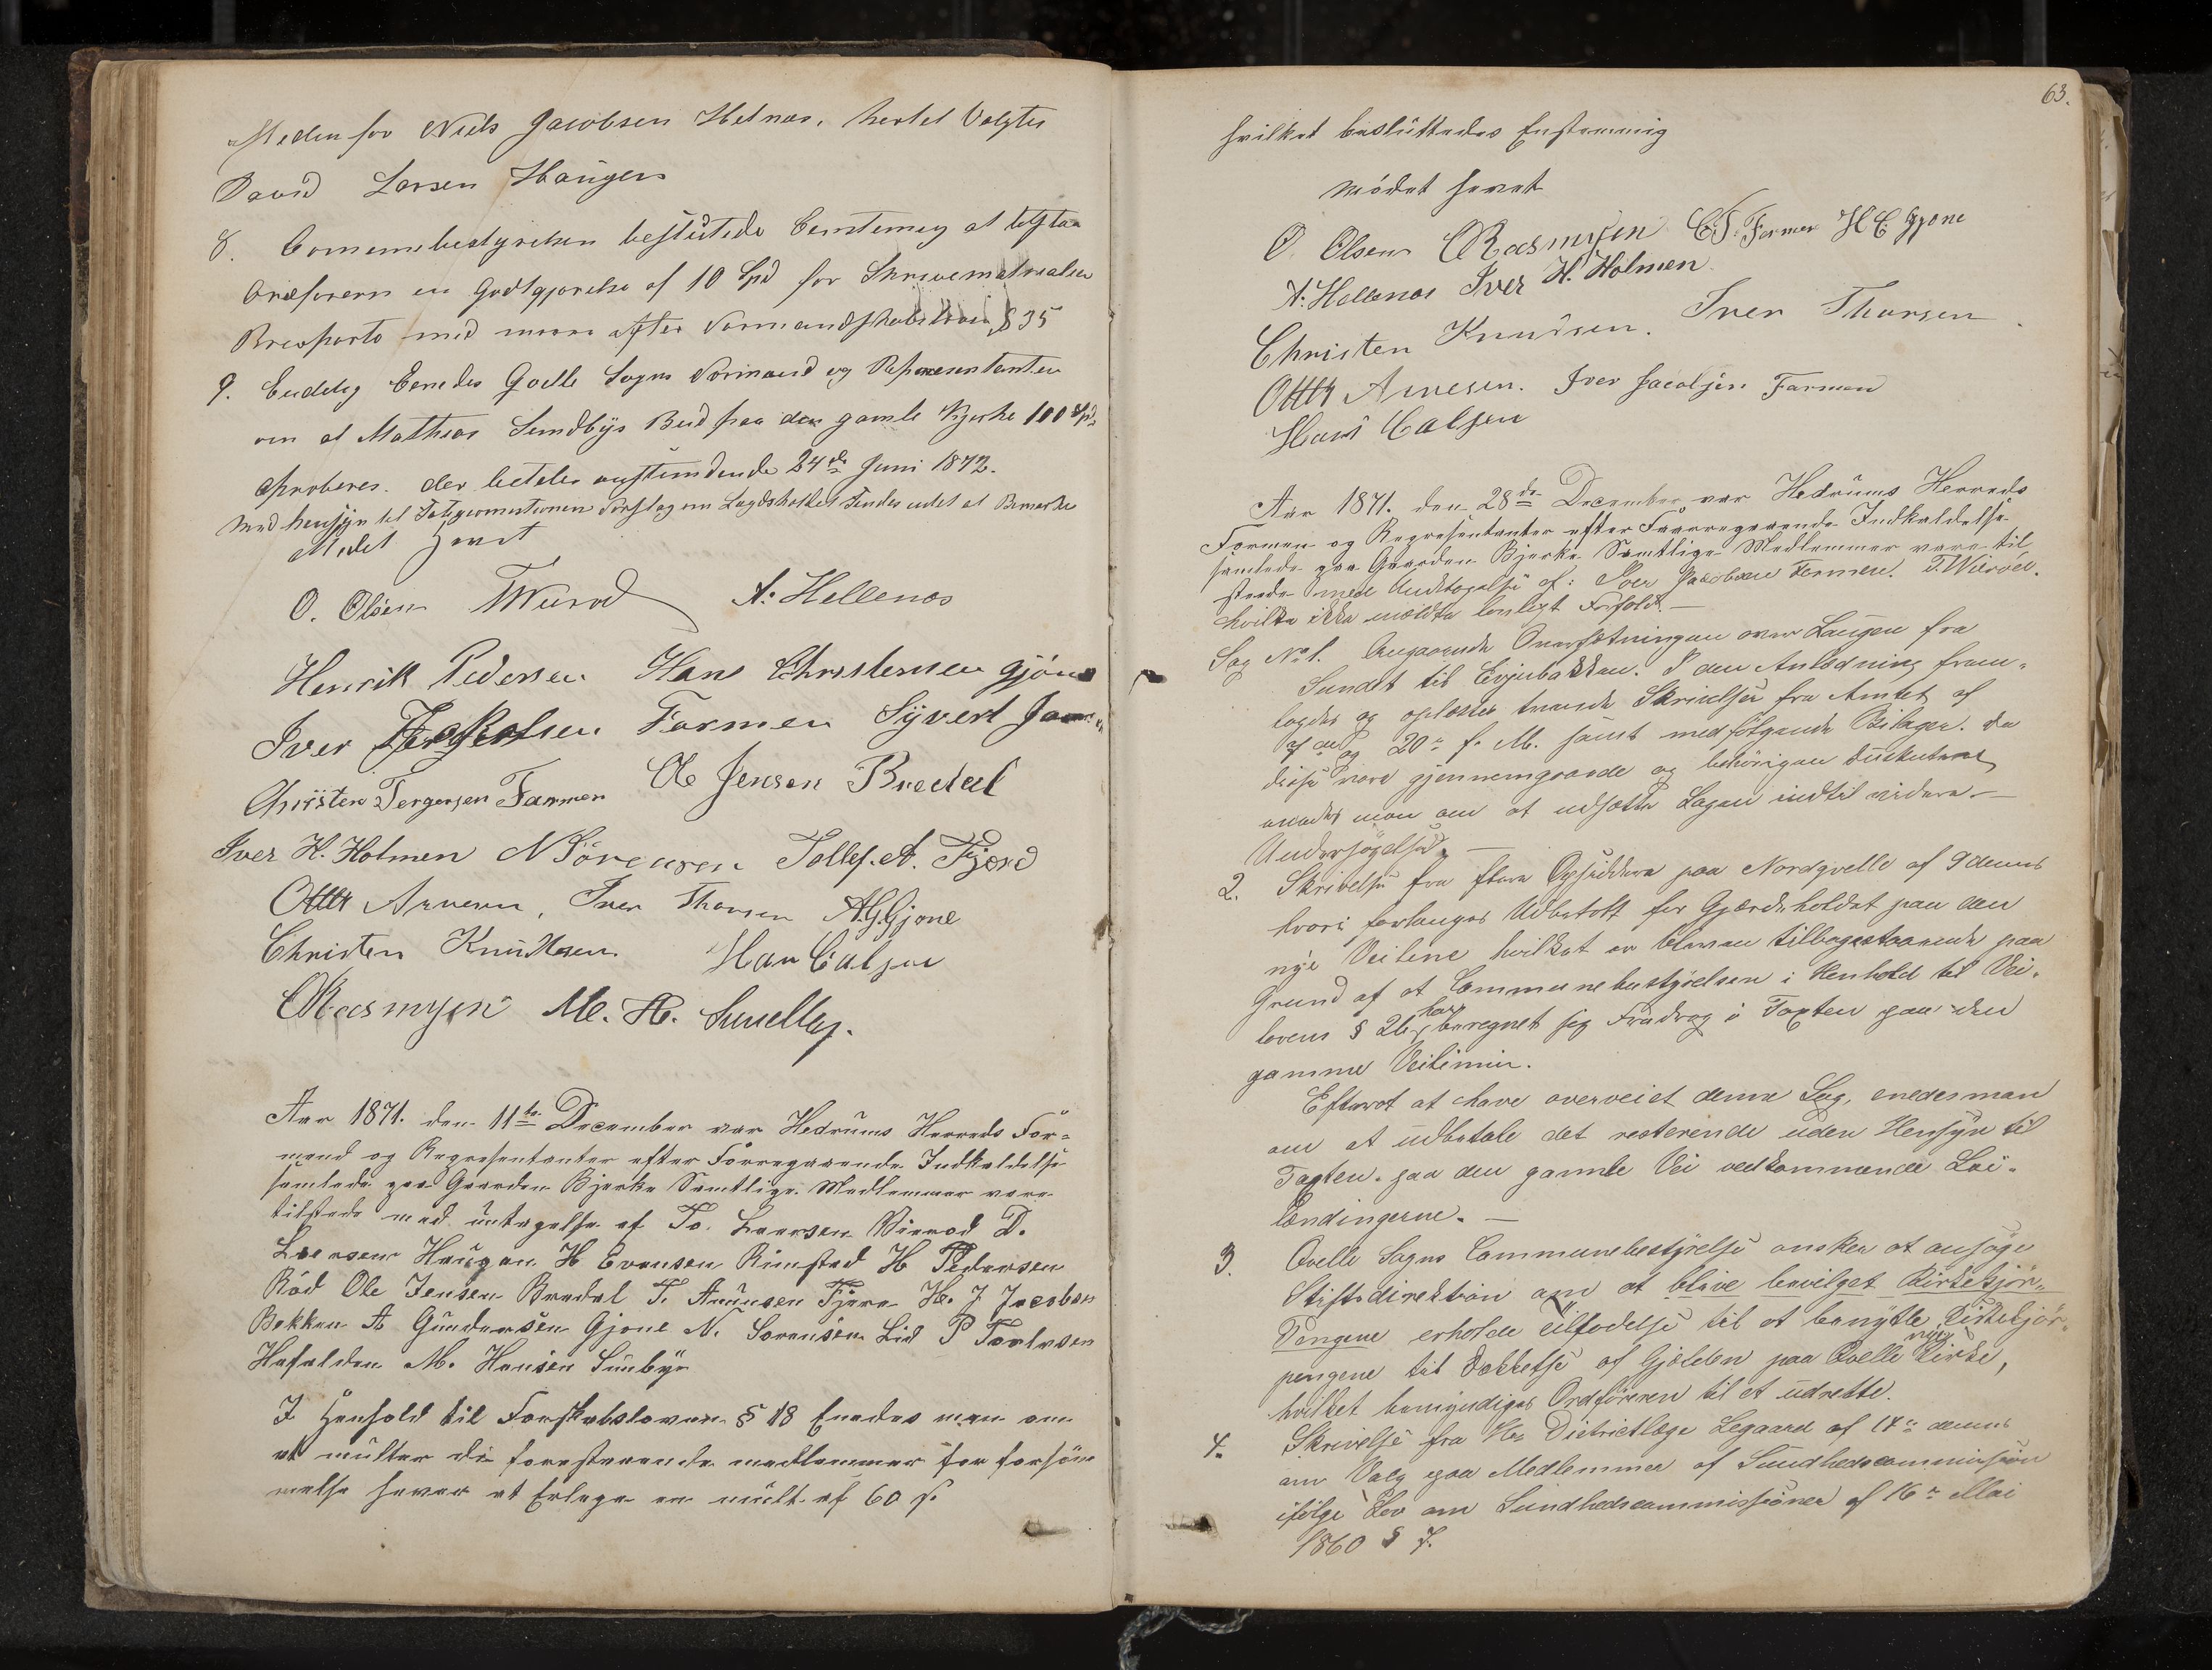 Meden for Niels Jacobsen Helnæs, hertel Valgtes
David Larsen Haugen
8. Comunebestyrelsen besluttede Eenstemig at
Ordføreren en Godtgjørelse af 10 Spd for Skrivematrialier
Brevporto med mere efter Formandskabsloven § 35
9. Endelig Eenedes Qvelle Sogns Formænd og Representanter
om at Mathias Sundbys Bud paa den gamle Kjerke 100 Spd
aproberes. der betales anstundende 24de Juni 1872.
Med hensyn til Forslag om Lagdsholdet Findes intet at Bemerke
Mødet hævet
O. Olsen TWierød A: Hellenæs
Henrik Pedersen Hans Christensen Gjóne
Iver Jacobsen Farmen Syvert
Christen Tergersen Farmen Ole Jensen Bredal
Iver H. Holmen N Sörensen Tollef. A. Fjære
Otter Arnesen, Iver Thorsen A G Gjone
Christen Knudtsen Hans Calsen
C Rasmusen M. H. Sundby.
Aar 1871. den 11te December var Hedrums Herreds For=
mænd og Representanter efter Forregaaende Indkaldelse
samlede paa Gaarden Bjerke Samtlige Medlemmer vare
tilstede med untagelse af To. Laersen Vierod D.
Laersen Haugen H Evensen Rimstad H Pedersen
Röd Ole Jensen Bredal T. Amunsen Fjære H. J Jacobsen
Bekken A Gundersen Gjone N. Sorensen Lid P
M. Hansen Sunbye
I Henhold til Forskabsloven § 18 Enedes man om
at multer de forestaaende medlemmer for forsöm
melse haver at Erlege en mult af 60 s.
63.
hvilket besluttedes Enstemmig
Mödet hævet
O. Olsen C Rasmusen C. T. Farmen H C Gjone
A: Hellenæs Iver H. Holmen
Christen Knudsen. Iver Thorsen
Otter Arnesen. Iver Jacobsen Farmen
Hans Calsen
Aar 1871. den 28de December var Hedrums Herreds
Formen og Representanter efter Foorregaaende Indkaldelse
samlede paa Gaarden Bjerke Samtlige Medlemmer vare til
stæde med Undtagelse af: Iver Jacobsen Farmen. T. Wieröd.
hvilke ikke meldte lovligt Forfald. —
Sag No 1. Angaaende Oversætningen over Laugen fra
Sundet til Evjubakken. I den Anledning frem=
lagdes og oplæstes tvende Skrivelser fra Amtet af
7de og 20de f. M. samt medfölgende Bilager. Da
disse vare gjennemgaaede og behörigen diskuterede
enedes man om at udsætte Sagen indtil videre
Undersögelse. —
2. Skrivelse fra flere Opsiddere paa Nordqvelle af 9 dennes
hvori forlanges Udbetalt for Gjærdeholdet paa den
nye Veilinie hvilket er bleven tilbagestaaende paa
Grund af at Communebestyrelsen i Henhold til Vei=
lovens § 26 har beregnet sig Fradrag i Taxten paa den
gamme Veilinie.
Efterat at have overveiet denne Sag, enedes man
om at udbetale det resterende uden Hensyn til
Taxten paa den gamle Vei vedkommende Lei=
lændingerne. —
3. Qvelle Sogns Communebestyrelse önsker at ansöge
Stiftsdirektion om at blive bevilget Kirkekjör=
Pengene erholde tilladelse til at benytte Kirkekjör=
pengene til Dækkelse af Gjælden paa Qvelle nye Kirke,
hvilket bemyndiges Ordföreren til at udrette.
4. Skrivelse fra Hr Districtlæge Legaard af 14de dennes
om Valg paa Medlemmer af Sundhedscommission
ifölge Lov om Sundhedscommissioner af 16de Mai
1860 § 7.